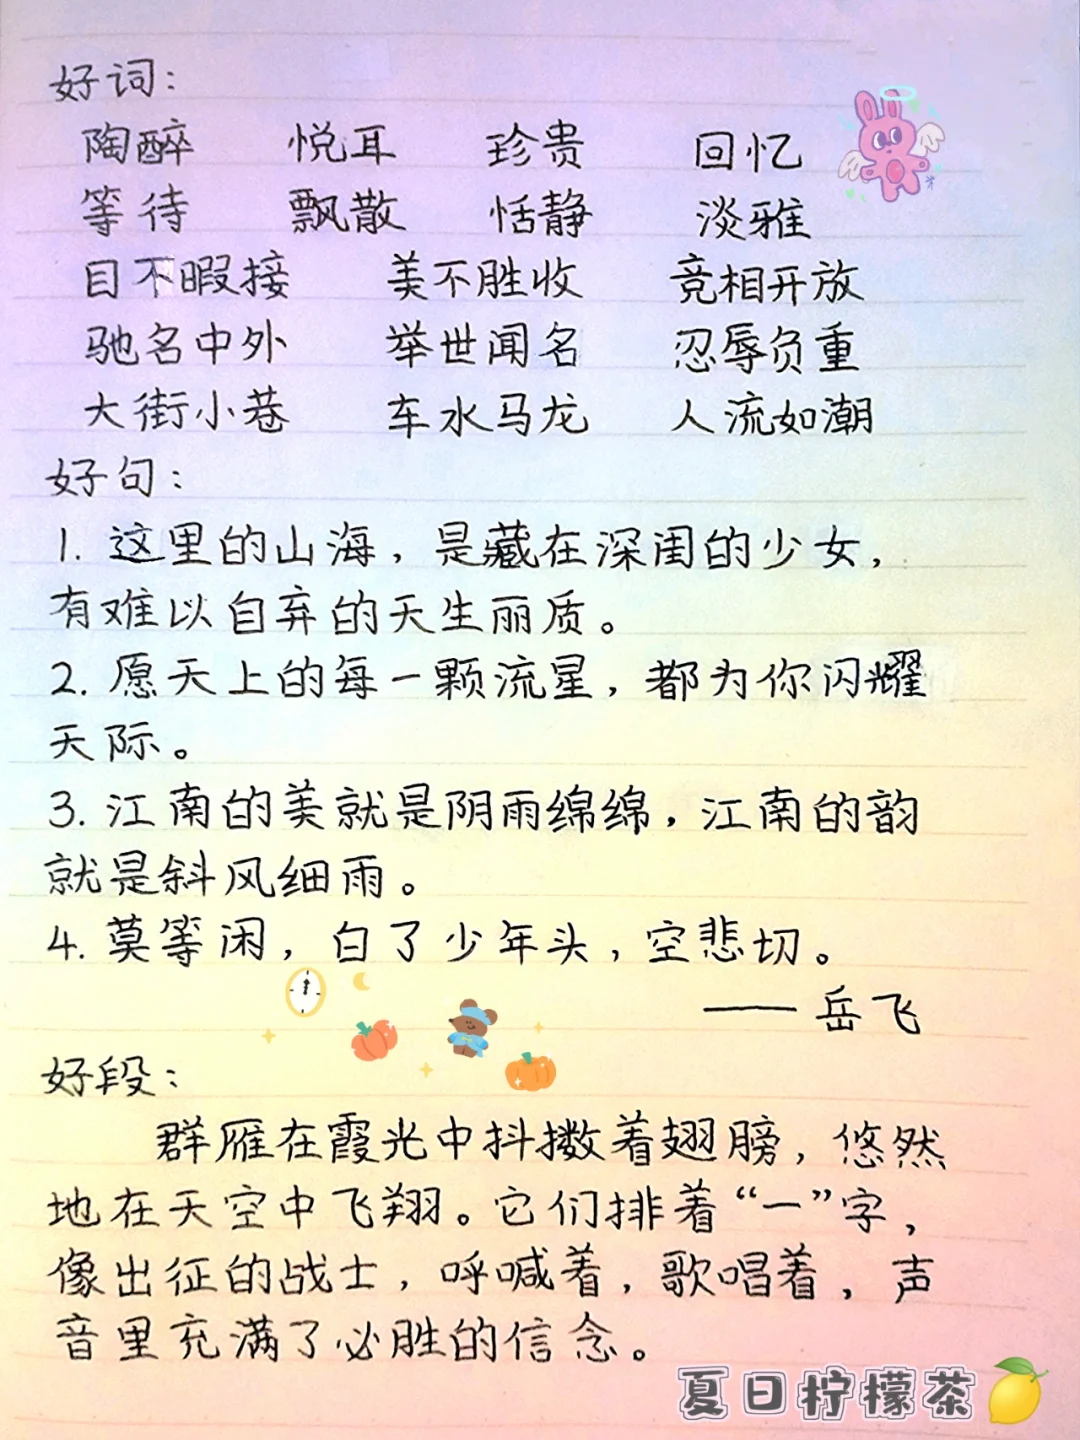 好词：
陶醉 悦耳 珍贵 回忆
等待 飘散 恬静 淡雅
目不暇接 美不胜收 竞相开放
驰名中外 举世闻名 忍辱负重
大街小巷 车水马龙 人流如潮
好句：
1. 这里的山海，是藏在深闺的少女，
有难以自弃的天生丽质。
2. 愿天上的每一颗流星，都为你闪耀
天际。
3. 江南的美就是阴雨绵绵，江南的韵
就是斜风细雨。
4. 莫等闲，白了少年头，空悲切。
——岳飞
好段：
群雁在霞光中抖擞着翅膀，悠然
地在天空中飞翔。它们排着“一”字，
像出征的战士，呼喊着，歌唱着，声
音里充满了必胜的信念。
夏日柠檬茶